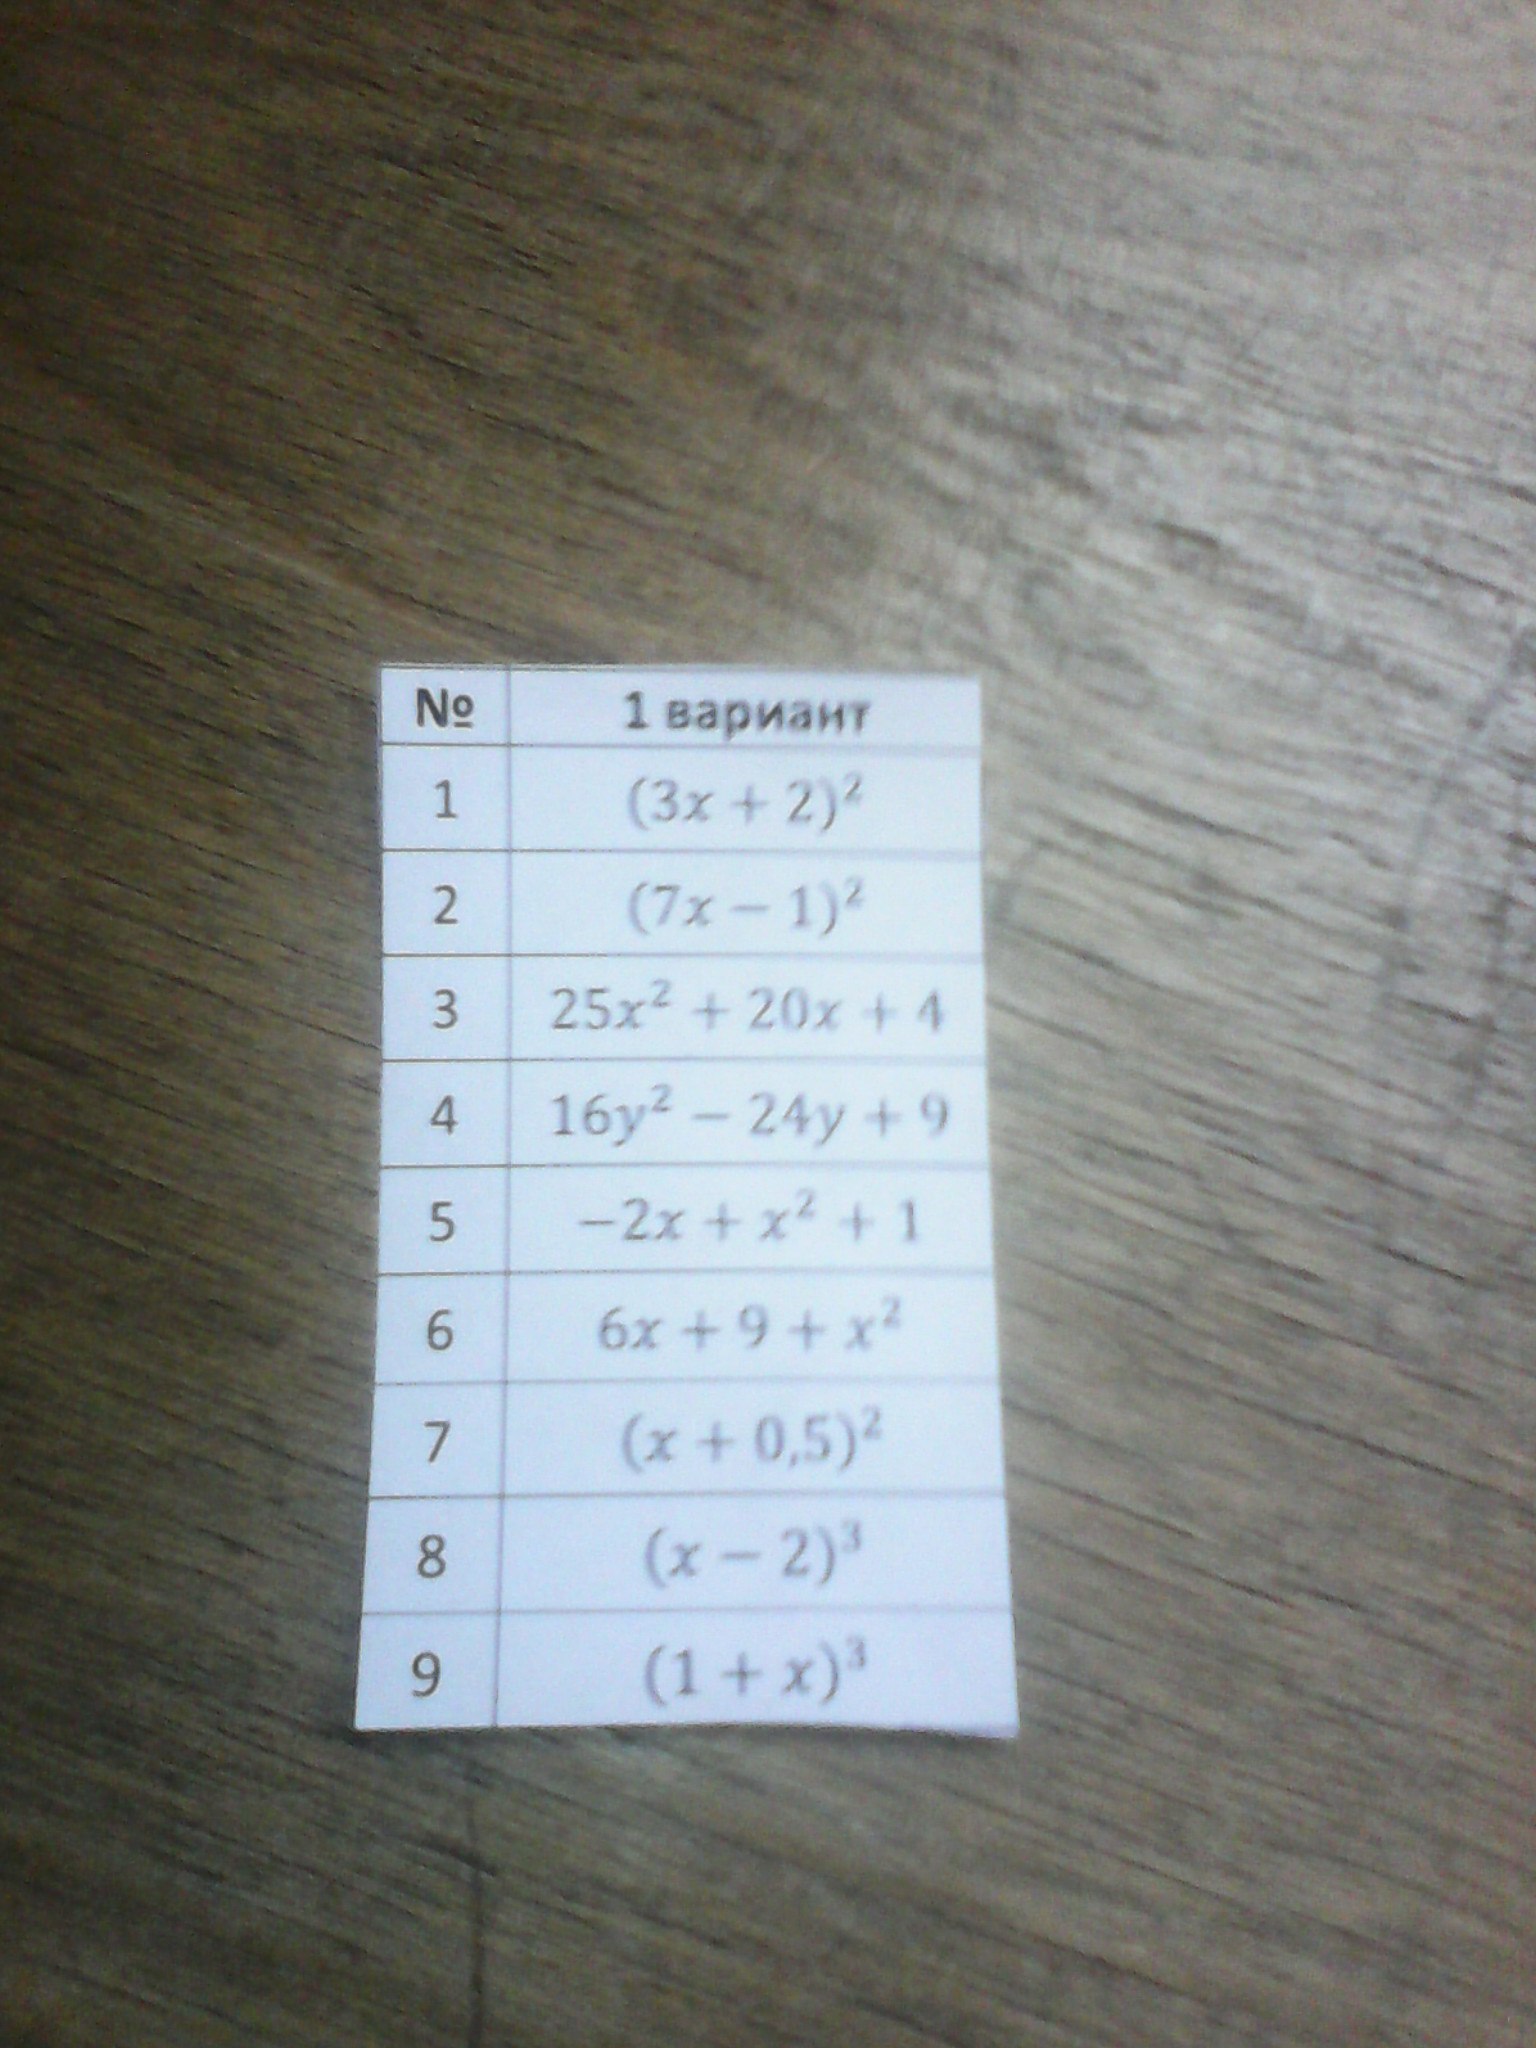 № 1 вариант
1 (3x + 2)²
2 (7x − 1)²
3 25x² + 20x + 4
4 16y² − 24y + 9
5 −2x + x² + 1
6 6x + 9 + x²
7 (x + 0,5)²
8 (x − 2)³
9 (1 + x)³